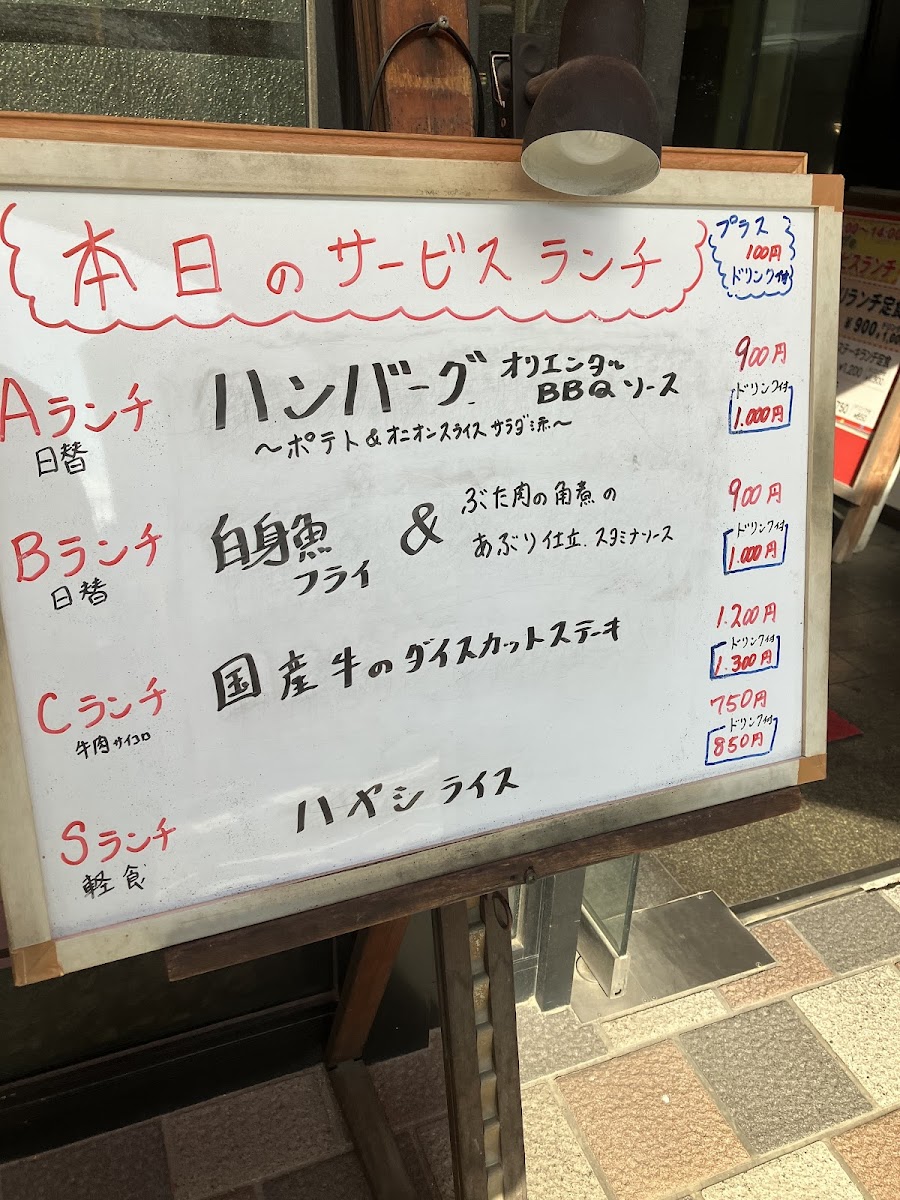 本日のサービスランチ
プラス
100円
ドリンク付
Aランチ
日替
ハンバーグ
オリエンタル
BBQソース
～ポテト&オニオンスライスサラダ添～
900円
ドリンク付
1.000円
Bランチ
日替
白身魚
フライ
&
ぶた肉の角煮の
あぶり仕立.スタミナソース
900円
ドリンク付
1.000円
Cランチ
牛肉サイコロ
国産牛のダイスカットステーキ
1.200円
ドリンク付
1.300円
Sランチ
軽食
ハヤシライス
750円
ドリンク付
850円
ランチ定
¥900